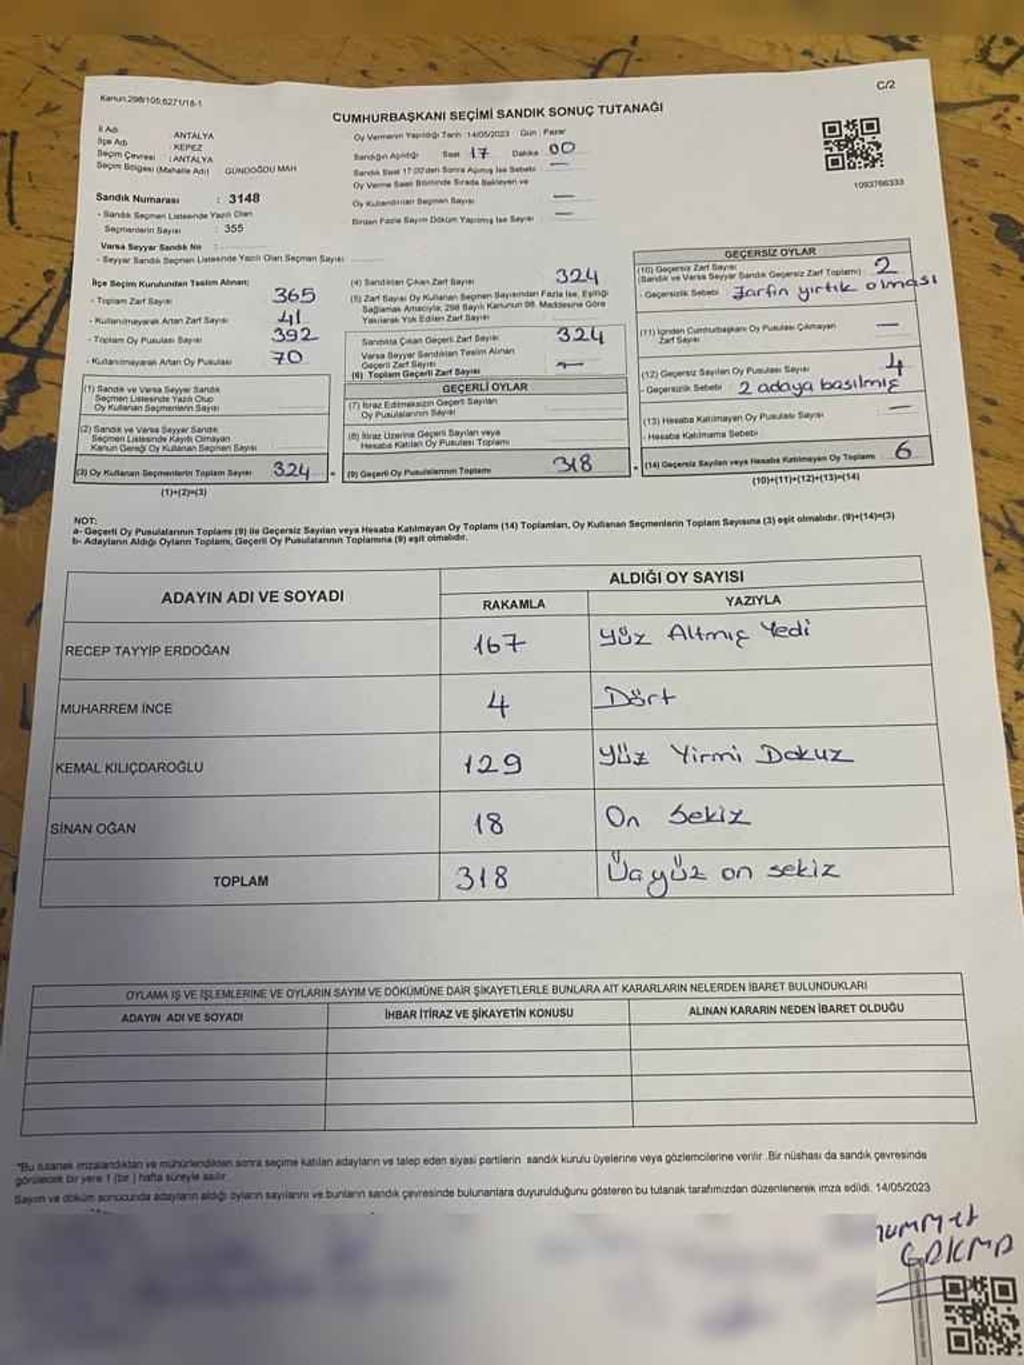 Kanun:298/105,6271/18-1
C/2
CUMHURBAŞKANI SEÇİMİ SANDIK SONUÇ TUTANAĞI
İl Adı : ANTALYA
İlçe Adı : KEPEZ
Seçim Çevresi : ANTALYA
Seçim Bölgesi (Mahalle Adı) GÜNDOĞDU MAH
Sandık Numarası : 3148
- Sandık Seçmen Listesinde Yazılı Olan
Seçmenlerin Sayısı : 355
Varsa Seyyar Sandık No :
- Seyyar Sandık Seçmen Listesinde Yazılı Olan Seçmen Sayısı
Oy Vermenin Yapıldığı Tarih : 14/05/2023 Gün : Pazar
Sandığın Açıldığı Saat 17 Dakika 00
Sandık Saat 17:00'den Sonra Açılmış İse Sebebi —
Oy Verme Saati Bitiminde Sırada Bekleyen ve
Oy Kullandırılan Seçmen Sayısı —
Birden Fazla Sayım Döküm Yapılmış İse Sayısı —
1093766333
İlçe Seçim Kurulundan Teslim Alınan;
- Toplam Zarf Sayısı 365
- Kullanılmayarak Artan Zarf Sayısı 41
- Toplam Oy Pusulası Sayısı 392
- Kullanılmayarak Artan Oy Pusulası 70
(1) Sandık ve Varsa Seyyar Sandık
Seçmen Listesinde Yazılı Olup
Oy Kullanan Seçmenlerin Sayısı
(2) Sandık ve Varsa Seyyar Sandık
Seçmen Listesinde Kayıtlı Olmayan
Kanun Gereği Oy Kullanan Seçmen Sayısı
(3) Oy Kullanan Seçmenlerin Toplam Sayısı 324
(1)+(2)=(3)
(4) Sandıktan Çıkan Zarf Sayısı 324
(5) Zarf Sayısı Oy Kullanan Seçmen Sayısından Fazla İse, Eşitliği
Sağlamak Amacıyla, 298 Sayılı Kanunun 98. Maddesine Göre
Yakılarak Yok Edilen Zarf Sayısı
Sandıkta Çıkan Geçerli Zarf Sayısı 324
Varsa Seyyar Sandıktan Teslim Alınan
Geçerli Zarf Sayısı —
(6) Toplam Geçerli Zarf Sayısı
GEÇERLİ OYLAR
(7) İtiraz Edilmeksizin Geçerli Sayılan
Oy Pusulalarının Sayısı
(8) İtiraz Üzerine Geçerli Sayılan veya
Hesaba Katılan Oy Pusulası Toplamı
(9) Geçerli Oy Pusulalarının Toplamı 318
GEÇERSİZ OYLAR
(10) Geçersiz Zarf Sayısı 2
(Sandık ve Varsa Seyyar Sandık Geçersiz Zarf Toplamı)
- Geçersizlik Sebebi : Zarfın yırtık olması
(11) İçinden Cumhurbaşkanı Oy Pusulası Çıkmayan
Zarf Sayısı —
(12) Geçersiz Sayılan Oy Pusulası Sayısı 4
- Geçersizlik Sebebi 2 adaya basılmış
(13) Hesaba Katılmayan Oy Pusulası Sayısı —
- Hesaba Katılmama Sebebi
(14) Geçersiz Sayılan veya Hesaba Katılmayan Oy Toplamı 6
(10)+(11)+(12)+(13)=(14)
NOT:
a- Geçerli Oy Pusulalarının Toplamı (9) ile Geçersiz Sayılan veya Hesaba Katılmayan Oy Toplamı (14) Toplamları, Oy Kullanan Seçmenlerin Toplam Sayısına (3) eşit olmalıdır. (9)+(14)=(3)
b- Adayların Aldığı Oyların Toplamı, Geçerli Oy Pusulalarının Toplamına (9) eşit olmalıdır.
ADAYIN ADI VE SOYADI
ALDIĞI OY SAYISI
RAKAMLA YAZIYLA
RECEP TAYYİP ERDOĞAN 167 Yüz Altmış Yedi
MUHARREM İNCE 4 Dört
KEMAL KILIÇDAROĞLU 129 Yüz Yirmi Dokuz
SİNAN OĞAN 18 On Sekiz
TOPLAM 318 Üçyüz on sekiz
OYLAMA İŞ VE İŞLEMLERİNE VE OYLARIN SAYIM VE DÖKÜMÜNE DAİR ŞİKAYETLERLE BUNLARA AİT KARARLARIN NELERDEN İBARET BULUNDUKLARI
ADAYIN ADI VE SOYADI İHBAR İTİRAZ VE ŞİKAYETİN KONUSU ALINAN KARARIN NEDEN İBARET OLDUĞU
*Bu tutanak imzalandıktan ve mühürlendikten sonra seçime katılan adayların ve talep eden siyasi partilerin sandık kurulu üyelerine veya gözlemcilerine verilir. Bir nüshası da sandık çevresinde
görülecek bir yere 1 (bir) hafta süreyle asılır.
Sayım ve döküm sonucunda adayların aldığı oyların sayılarını ve bunların sandık çevresinde bulunanlara duyurulduğunu gösteren bu tutanak tarafımızdan düzenlenerek imza edildi. 14/05/2023